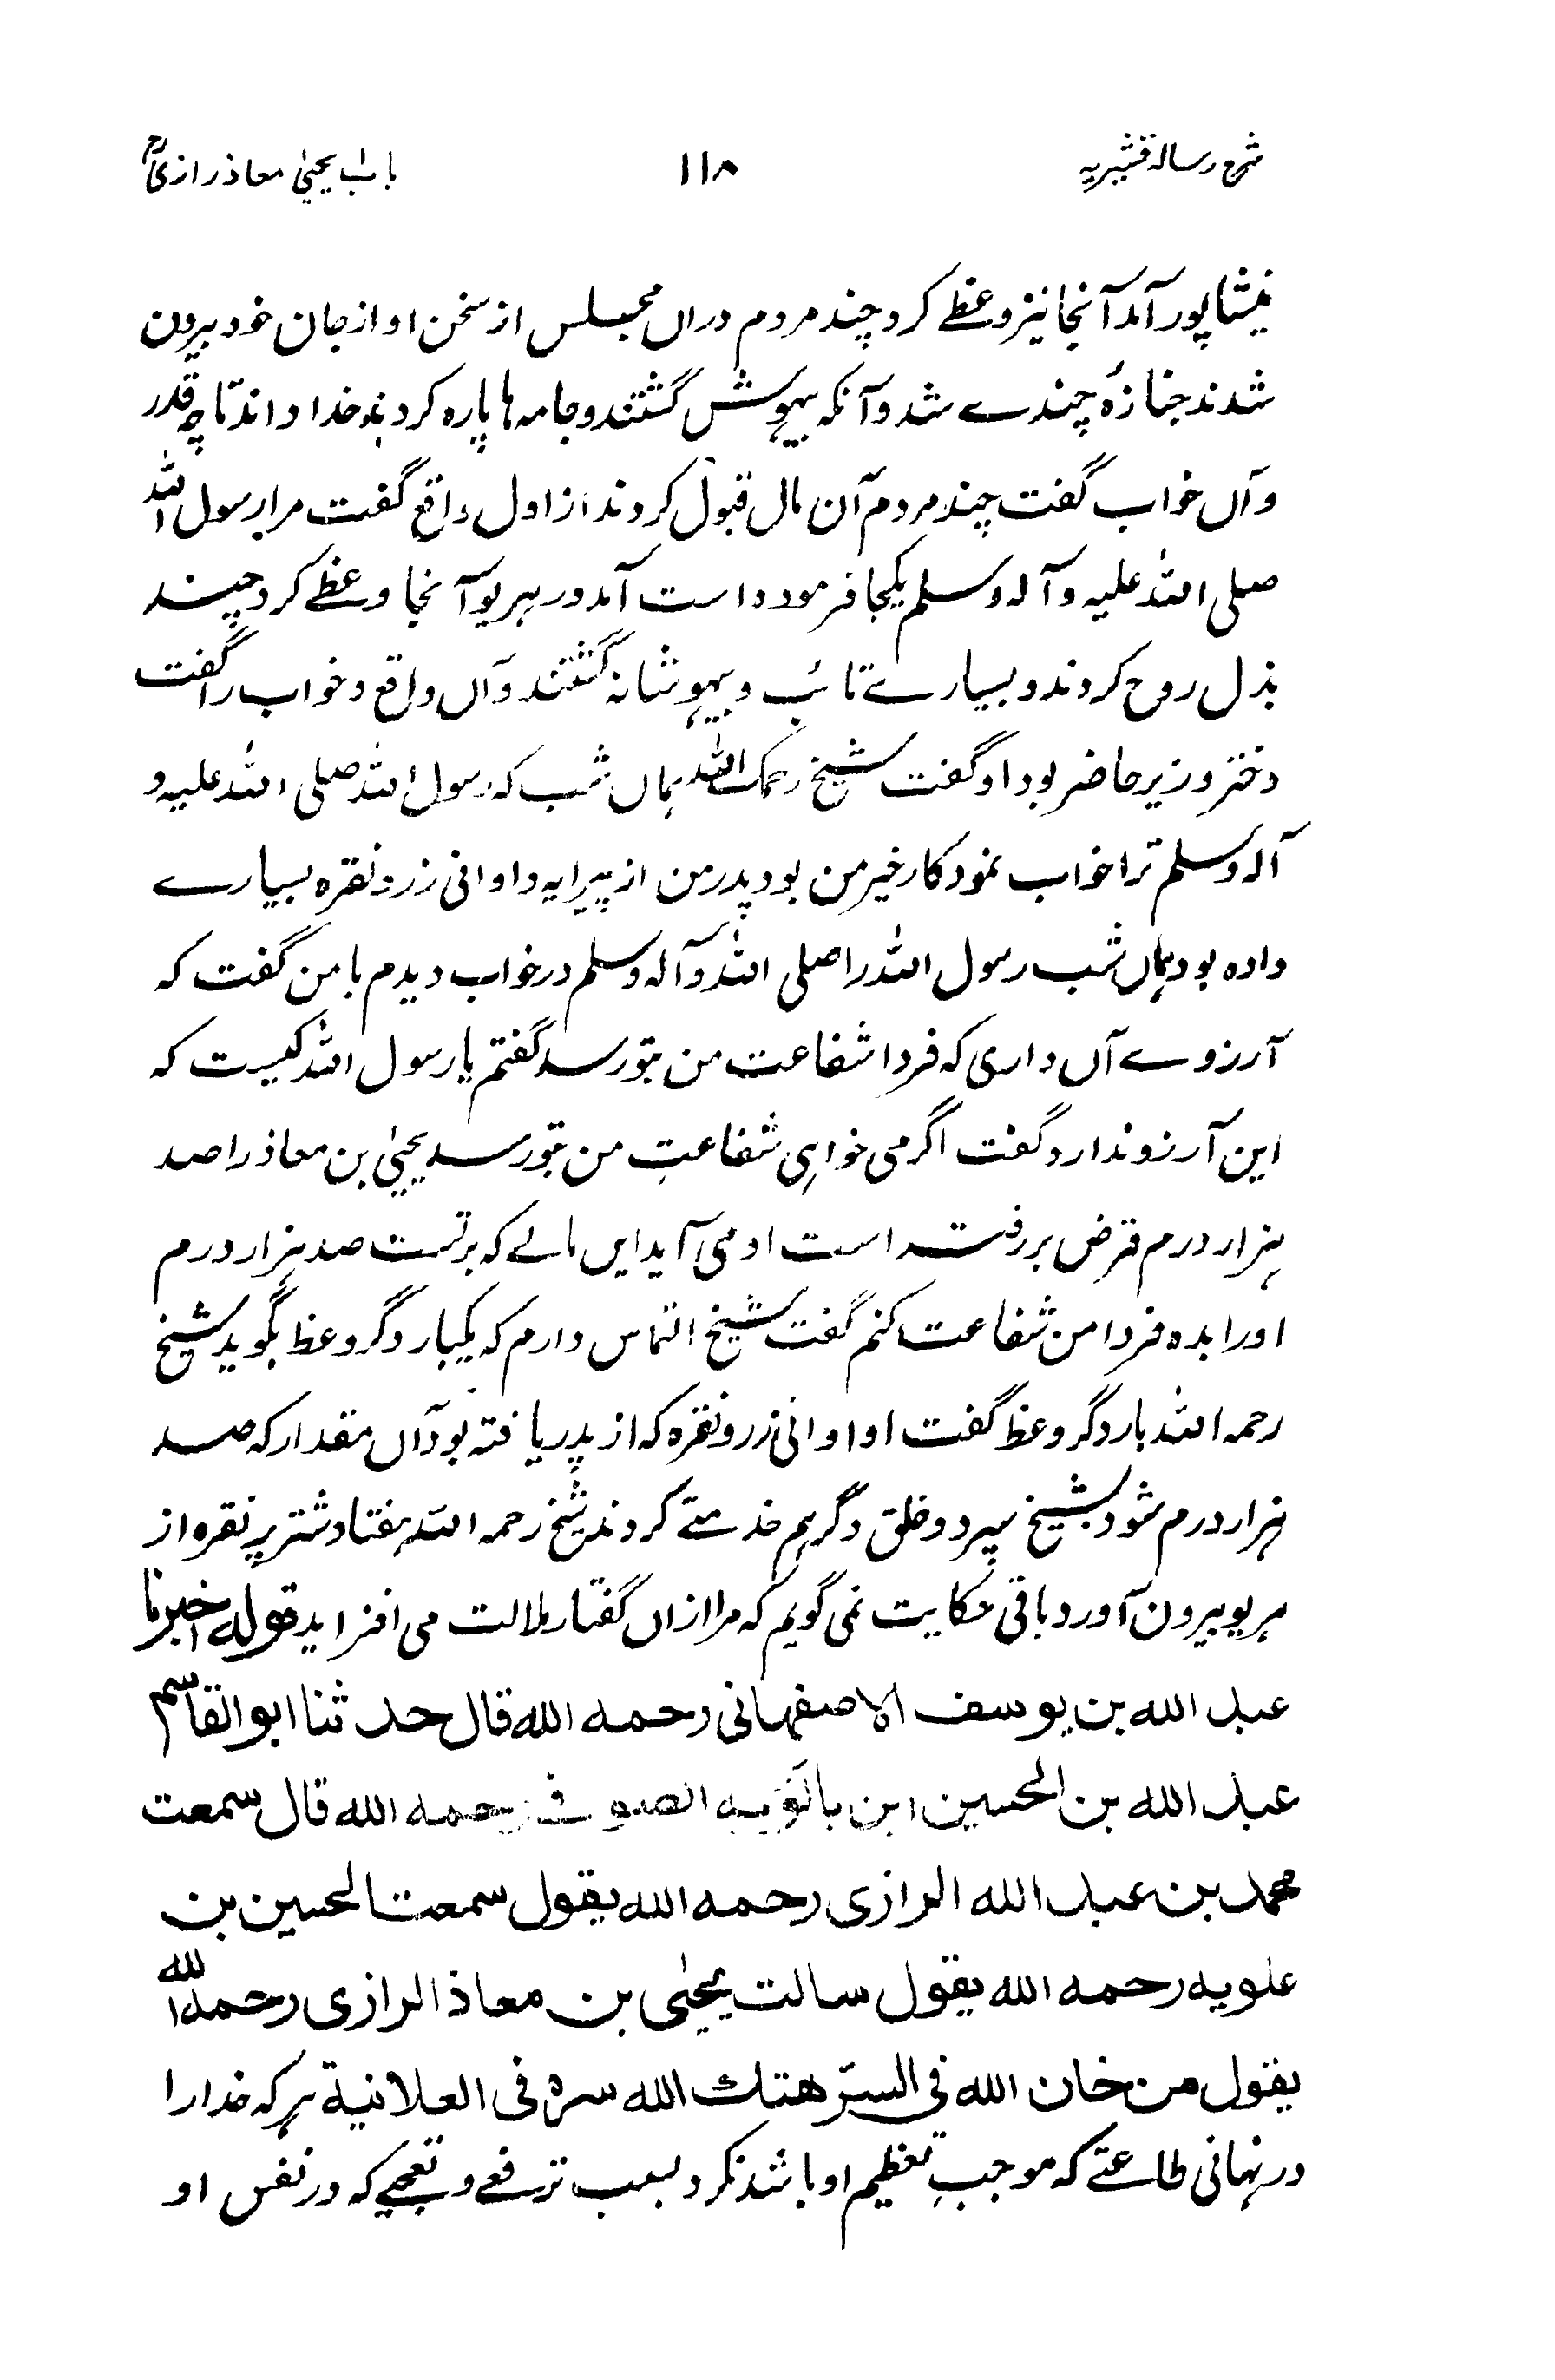 شرح رسالہ قشیریہ ۱۱۸ باب یحییٰ معاذ رازیؒ
نیشاپور آمد آنجا نیز وعظے کرد چند مردم دراں مجلس از سخن او از جان خود بیرون
شدند جنازۂ چندے شد و آنکہ بیہوش گشتند و جامہ ہا پارہ کردند خدا داند تا چہ قدر
و آں خواب گفت چند مردم آن مال قبول کردند از اول واقع گفت مرا رسول اللہ
صلی اللہ علیہ و آلہ وسلم یکجا فرمودہ است آمد در ہریو آنجا وعظے کرد چند
بذل روح کردند و بسیارے تائب و بیہوشانہ گشتند و آں واقع و خواب را گفت
دختر وزیر حاضر بود او گفت شیخ رحمک اللہ ہماں شب کہ رسول اللہ صلی اللہ علیہ و
آلہ وسلم ترا خواب نمود کار خیر من بود پدر من از پیرایہ و اوانی زر و نقرہ بسیارے
دادہ بود ہماں شب رسول اللہ را صلی اللہ و آلہ وسلم در خواب دیدم با من گفت کہ
آرزوے آں داری کہ فردا شفاعت من بتو رسد گفتم یا رسول اللہ کیست کہ
این آرزو ندارد گفت اگر می خواہی شفاعتِ من بتو رسد یحییٰ بن معاذ را صد
ہزار درم قرض بر رفتہ است او می آید ایں مالے کہ بر تست صد ہزار درم
او را بدہ فردا من شفاعت کنم گفت شیخ التماس دارم کہ یکبار دگر وعظ بگوید شیخ
رحمہ اللہ بار دگر وعظ گفت او اوانی زر و نقرہ کہ از پدر یافتہ بود آں مقدار کہ صد
ہزار درم شود بشیخ سپرد و خلق دگر ہم خدمتے کردند شیخ رحمہ اللہ ہفتاد شتر پر نقرہ از
ہریو بیرون آورد باقی حکایت نمی گویم کہ مرا ازاں گفتار ملالت می افزاید قوله اخبرنا
عبد الله بن یوسف الاصفهانی رحمه الله قال حدثنا ابو القاسم
عبد الله بن الحسین ابن بالویه الصوفی رحمه الله قال سمعت
محمد بن عبد الله الرازی رحمه الله یقول سمعت الحسین بن
علویه رحمه الله یقول سالت یحیٰی بن معاذ الرازی رحمه الله
یقول من خان الله فی السرّ هتك الله سره فی العلانیة ہر کہ خدا را
در نہانی طاعتے کہ موجبِ تعظیم او باشد نکرد بسبب ترفعے و تعجبے کہ در نفس او